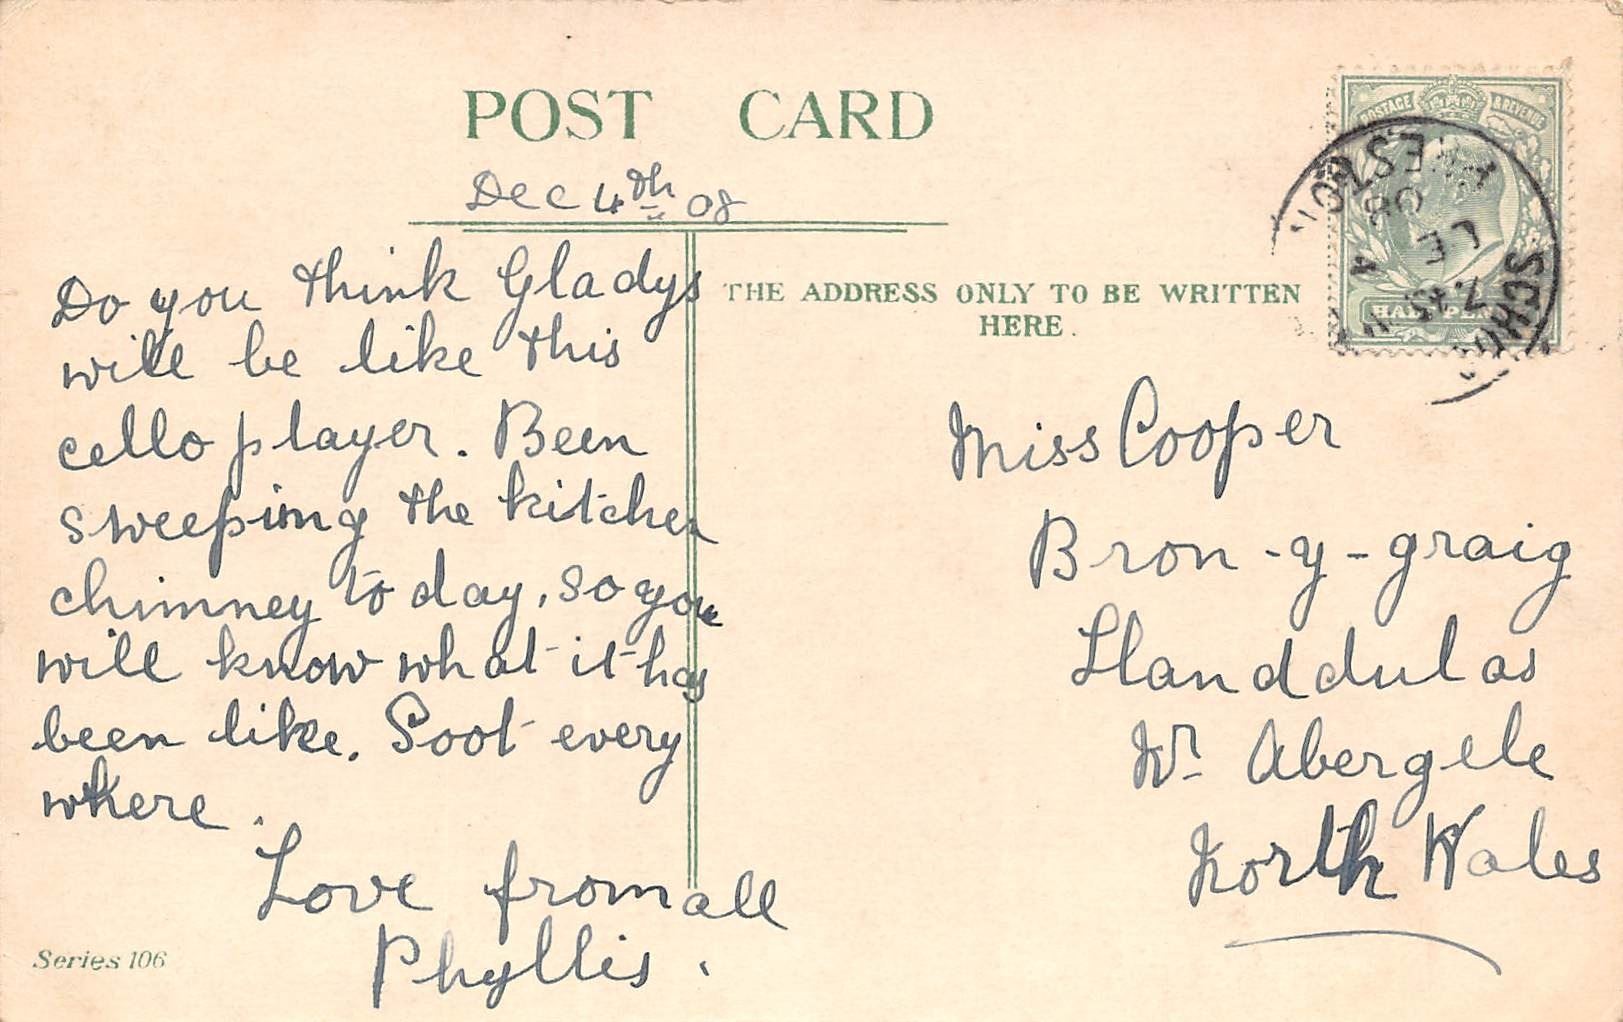 POST CARD
Dec 4th 08
Do you think Gladys
will be like this
cello player. Been
sweeping the kitchen
chimney to day, so you
will know what it has
been like. Soot every
where.
Love from all
Phyllis.
Series 106
THE ADDRESS ONLY TO BE WRITTEN
HERE.
POSTAGE & REVENUE
HALF PENNY
7.45
08
Miss Cooper
Bron-y-graig
Llanddulas
Nr Abergele
North Wales